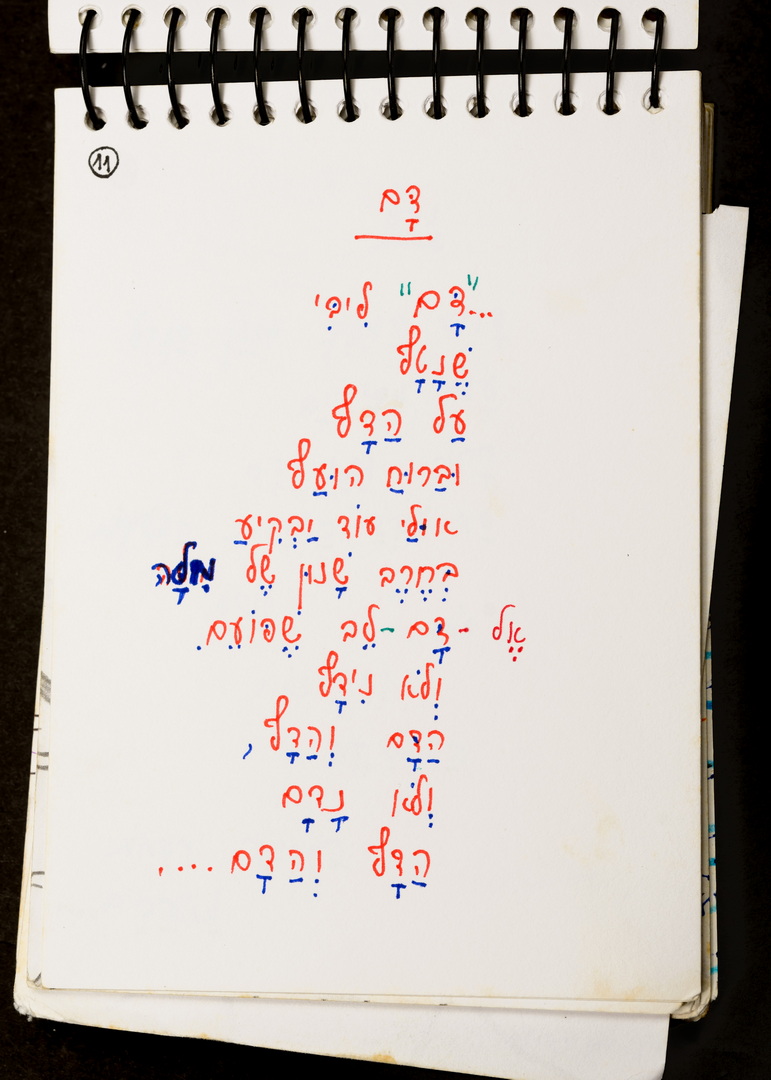 11
דָּם
..."דָּם" לִיבִּי
שֶׁנָּטָף
עַל הַדָּף
וּבְרוּחַ הוּעַף
אוּלַי עוֹד יַבְקִיעַ
בְּחֶרֶב שָׁנוּן שֶׁל מִלָּה
אֶל-דָּם-לֵב שֶׁפּוֹעֵם.
וְלֹא נִידָּף
הַדָּם וְהַדָּף,
וְלֹא נָדַם
הַדָּף וְהַדָּם....